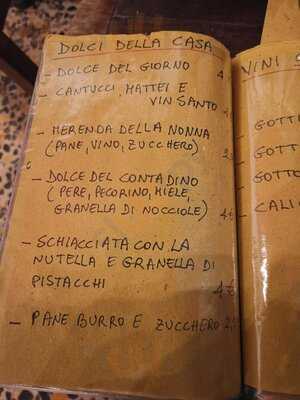 DOLCI DELLA CASA
- DOLCE DEL GIORNO 4
- CANTUCCI, MATTEI E
VIN SANTO
- MERENDA DELLA NONNA
(PANE, VINO, ZUCCHERO)
- DOLCE DEL CONTADINO
(PERE, PECORINO, MIELE,
GRANELLA DI NOCCIOLE) 4€
- SCHIACCIATA CON LA
NUTELLA E GRANELLA DI
PISTACCHI 4€
- PANE BURRO E ZUCCHERO
VINI
- GOTT
- GOTT
- GOTTO
- CALI